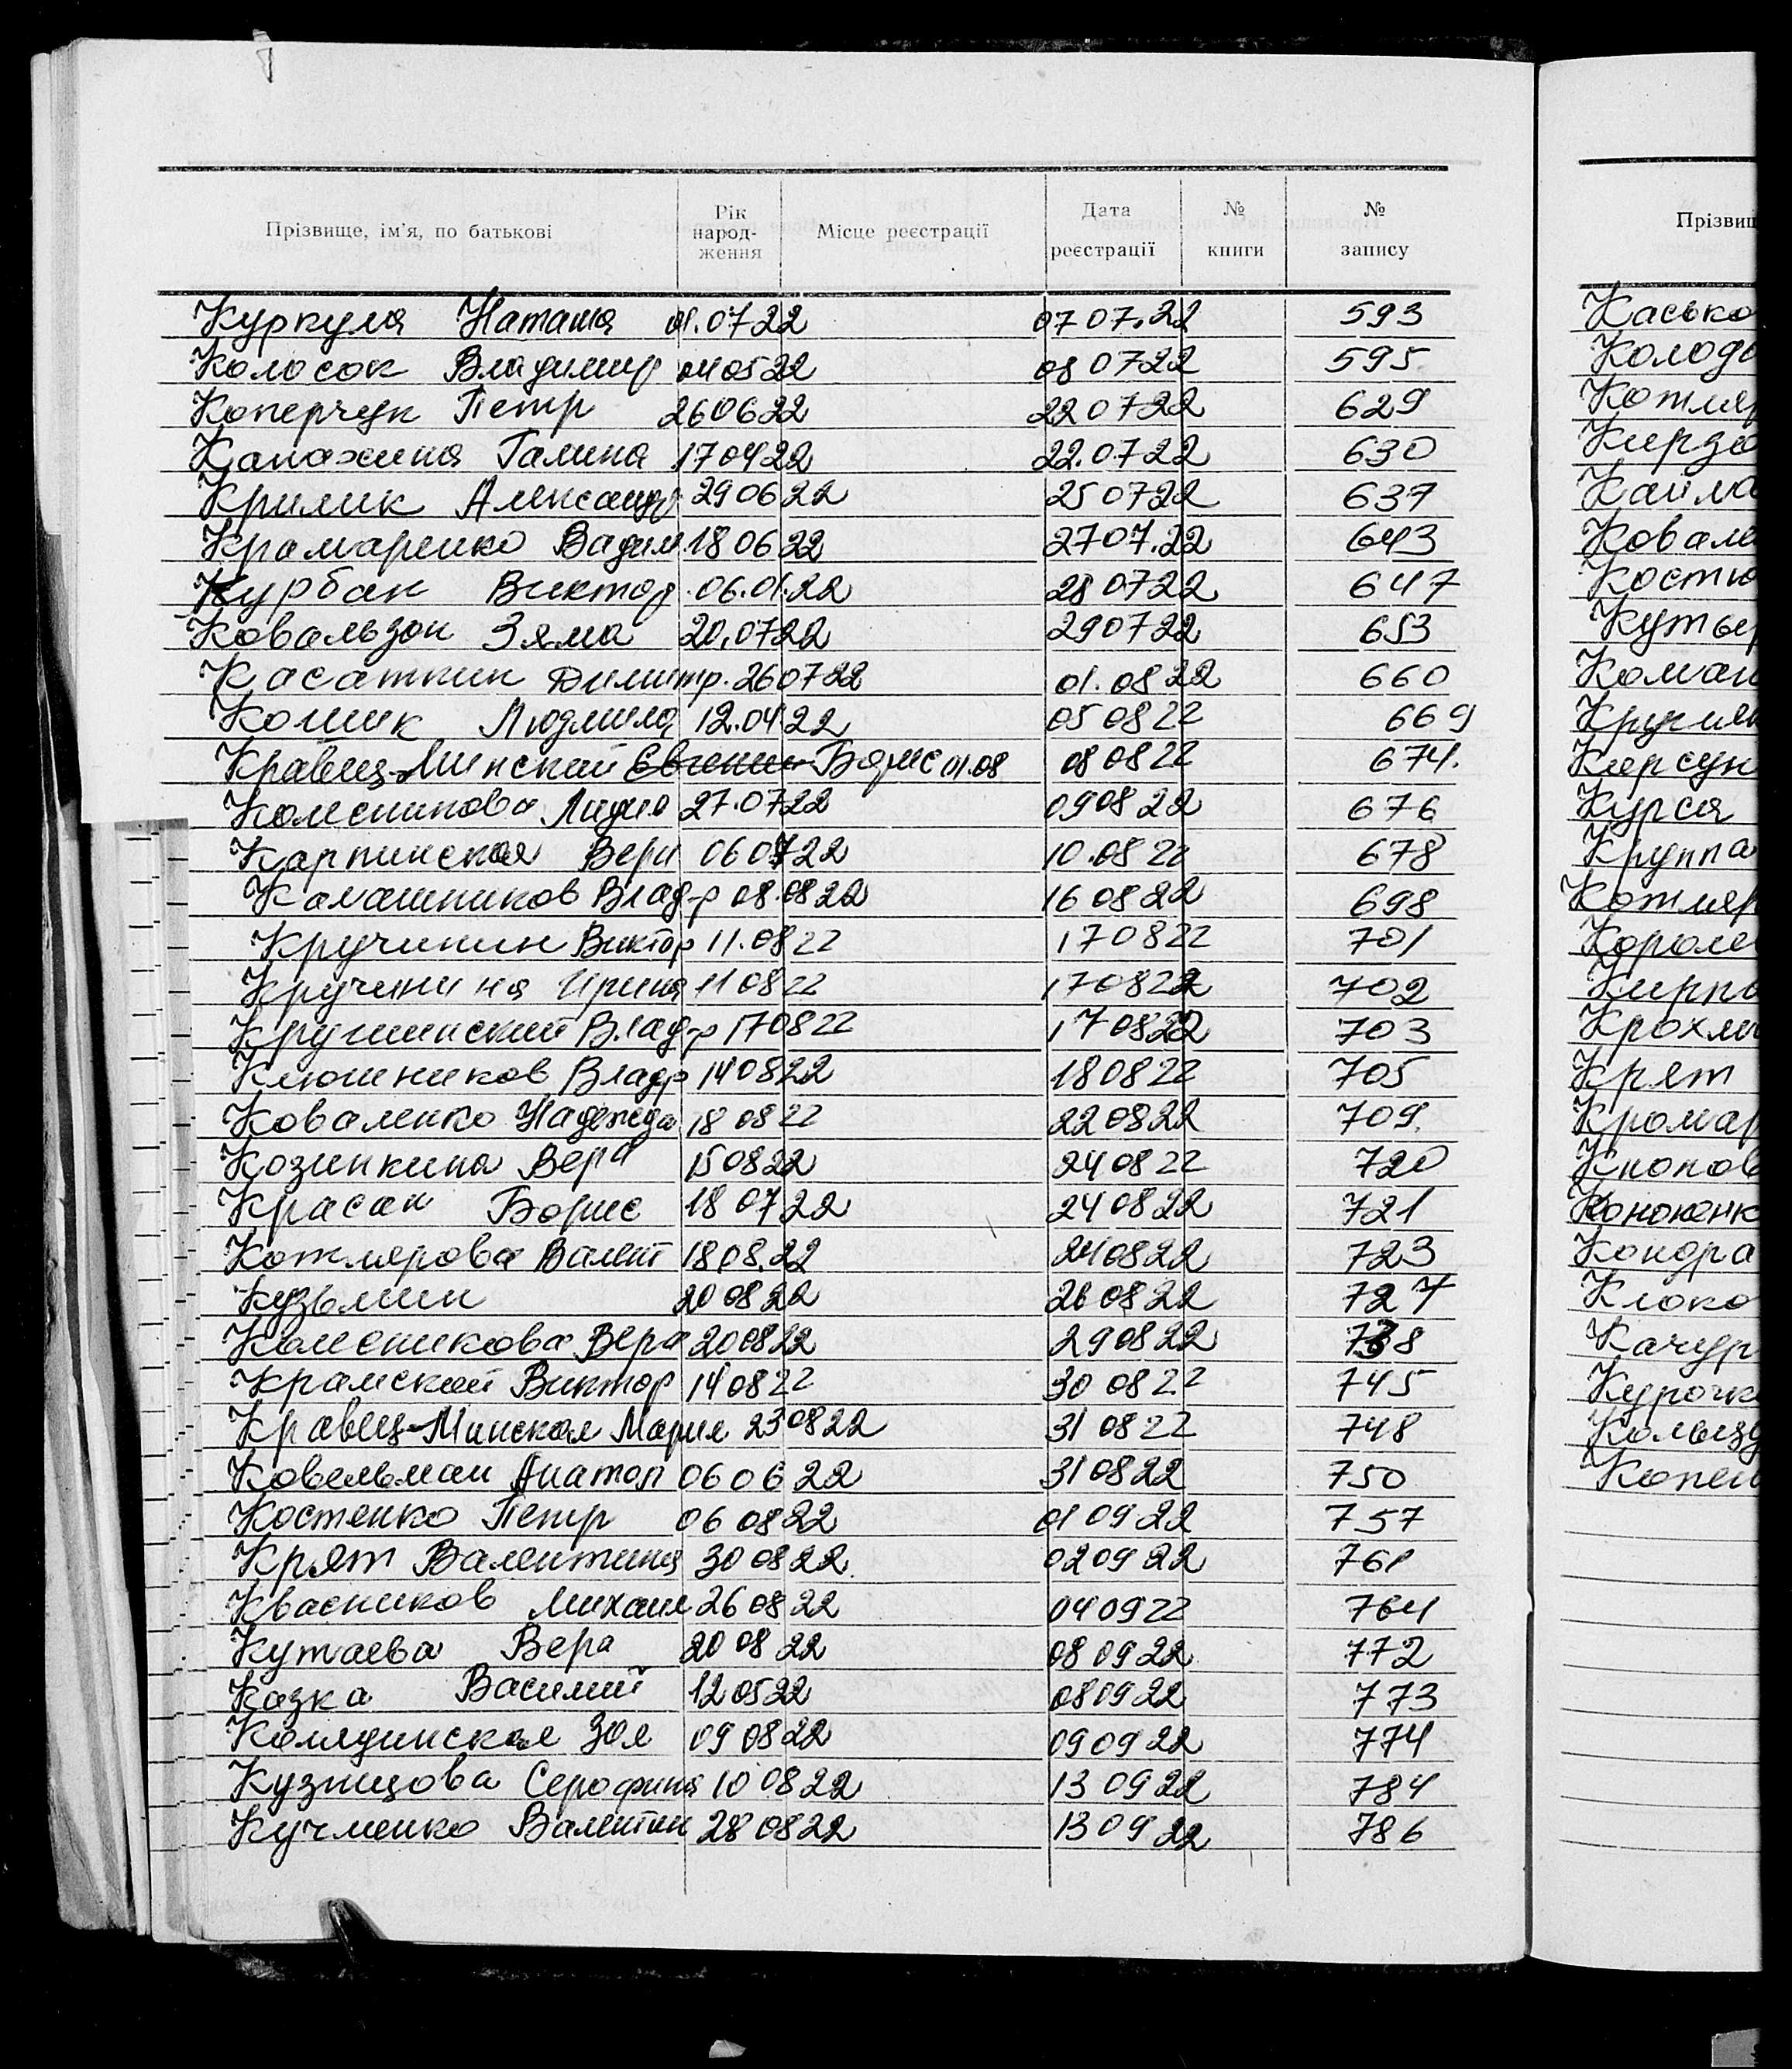 Прізвище, ім'я, по батькові Рік народ-ження Місце реєстрації Дата реєстрації № книги № запису
Куркуля Наташа 01.07 22 07 07.22 593
Колосок Владимир 04 05 22 08 07 22 595
Коперчук Петр 26 06 22 22 07 22 629
Капахина Галина 17 04 22 22.07 22 630
Крилик Александр 29 06 22 25 07 22 637
Крамаренко Вадим 18 06 22 27 07.22 643
Курбак Виктор 06.01.22 28 07 22 647
Ковальзон Зяма 20.07 22 29 07 22 653
Касаткин Димитр. 26 07 22 01.08 22 660
Кошик Людмила 12.04 22 05 08 22 669
Кравец-Минский Евгений Борис 01.08 08 08 22 674.
Колесникова Лидия 27.07 22 09 08 22 676
Карпинская Вера 06 07 22 10.08 22 678
Калашников Влад-р 08.08 22 16 08 22 698
Кручинин Виктор 11.08 22 17 08 22 701
Кручинина Ирина 11 08 22 17 08 22 702
Кручинский Влад-р 17 08 22 17 08 22 703
Ключников Владр 14 08 22 18 08 22 705
Коваленко Надежда 18 08 22 22 08 22 709.
Козинкина Вера 15 08 22 24 08 22 720
Красан Борис 18 07 22 24 08 22 721
Котлярова Валент 18.08.22 24 08 22 723
Кузьмин 20 08 22 26 08 22 727
Колесникова Вера 20 08 22 29 08 22 738
Крамской Виктор 14 08 22 30 08 22 745
Кравец-Минская Мария 23 08 22 31 08 22 748
Ковельман Анатол 06 06 22 31 08 22 750
Костенко Петр 06 08 22 01 09 22 757
Крят Валентина 30 08 22 02 09 22 761
Квасников Михаил 26 08 22 04 09 22 764
Кутаева Вера 20 08 22 08 09 22 772
Казка Василий 12 05 22 08 09 22 773
Колядинская Зоя 09 08 22 09 09 22 774
Кузнецова Серафина 10 08 22 13 09 22 784
Кучменко Валентин 28 08 22 13 09 22 786
Прізвищ
Касько
Колодо
Котляр
Кирзо
Кайма
Ковале
Костю
Кутье
Коман
Керсун
Курся
Круппа
Котляр
Короле
Кирпа
Крохма
Крят
Крамар
Кононенк
Кондра
Клоко
Качур
Курочк
Копей